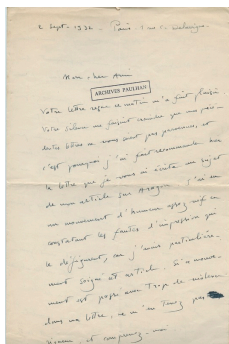 2 Sept. 1932 - Paris
Mon cher Ami
ARCHIVES PAULHAN
Votre lettre reçue ce matin m'a fait plaisir
Votre silence me faisait craindre que mes
lettres ne vous soient pas parvenues, et
c'est pourquoi j'ai fait recommander
la lettre que je vous ai écrite au sujet
de mon article sur Aragon. J'ai eu
un mouvement d'humeur assez vif en
constatant les fautes d'impression qui
le défigurent, car j'avais particulière-
ment soigné cet article. Si ce mouve-
ment est
dans ma lettre, ne m'en tenez pas
rigueur et comprenez-moi